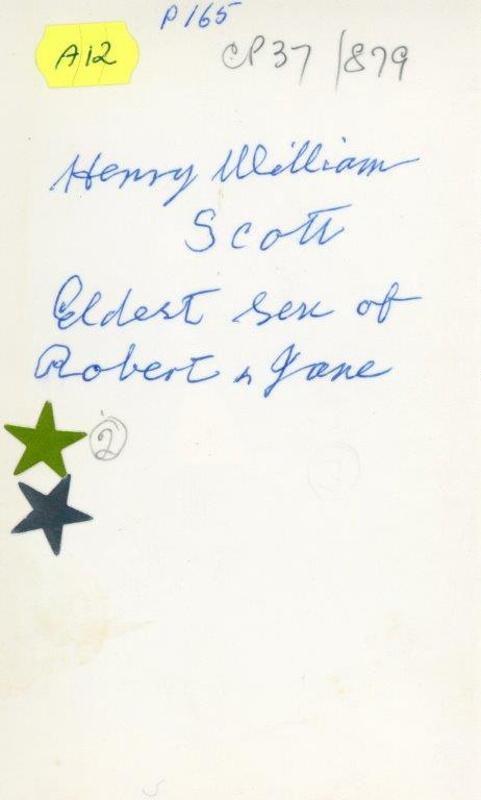 P165
A12
CP37/879
Henry William
Scott
Eldest son of
Robert & Jane
2